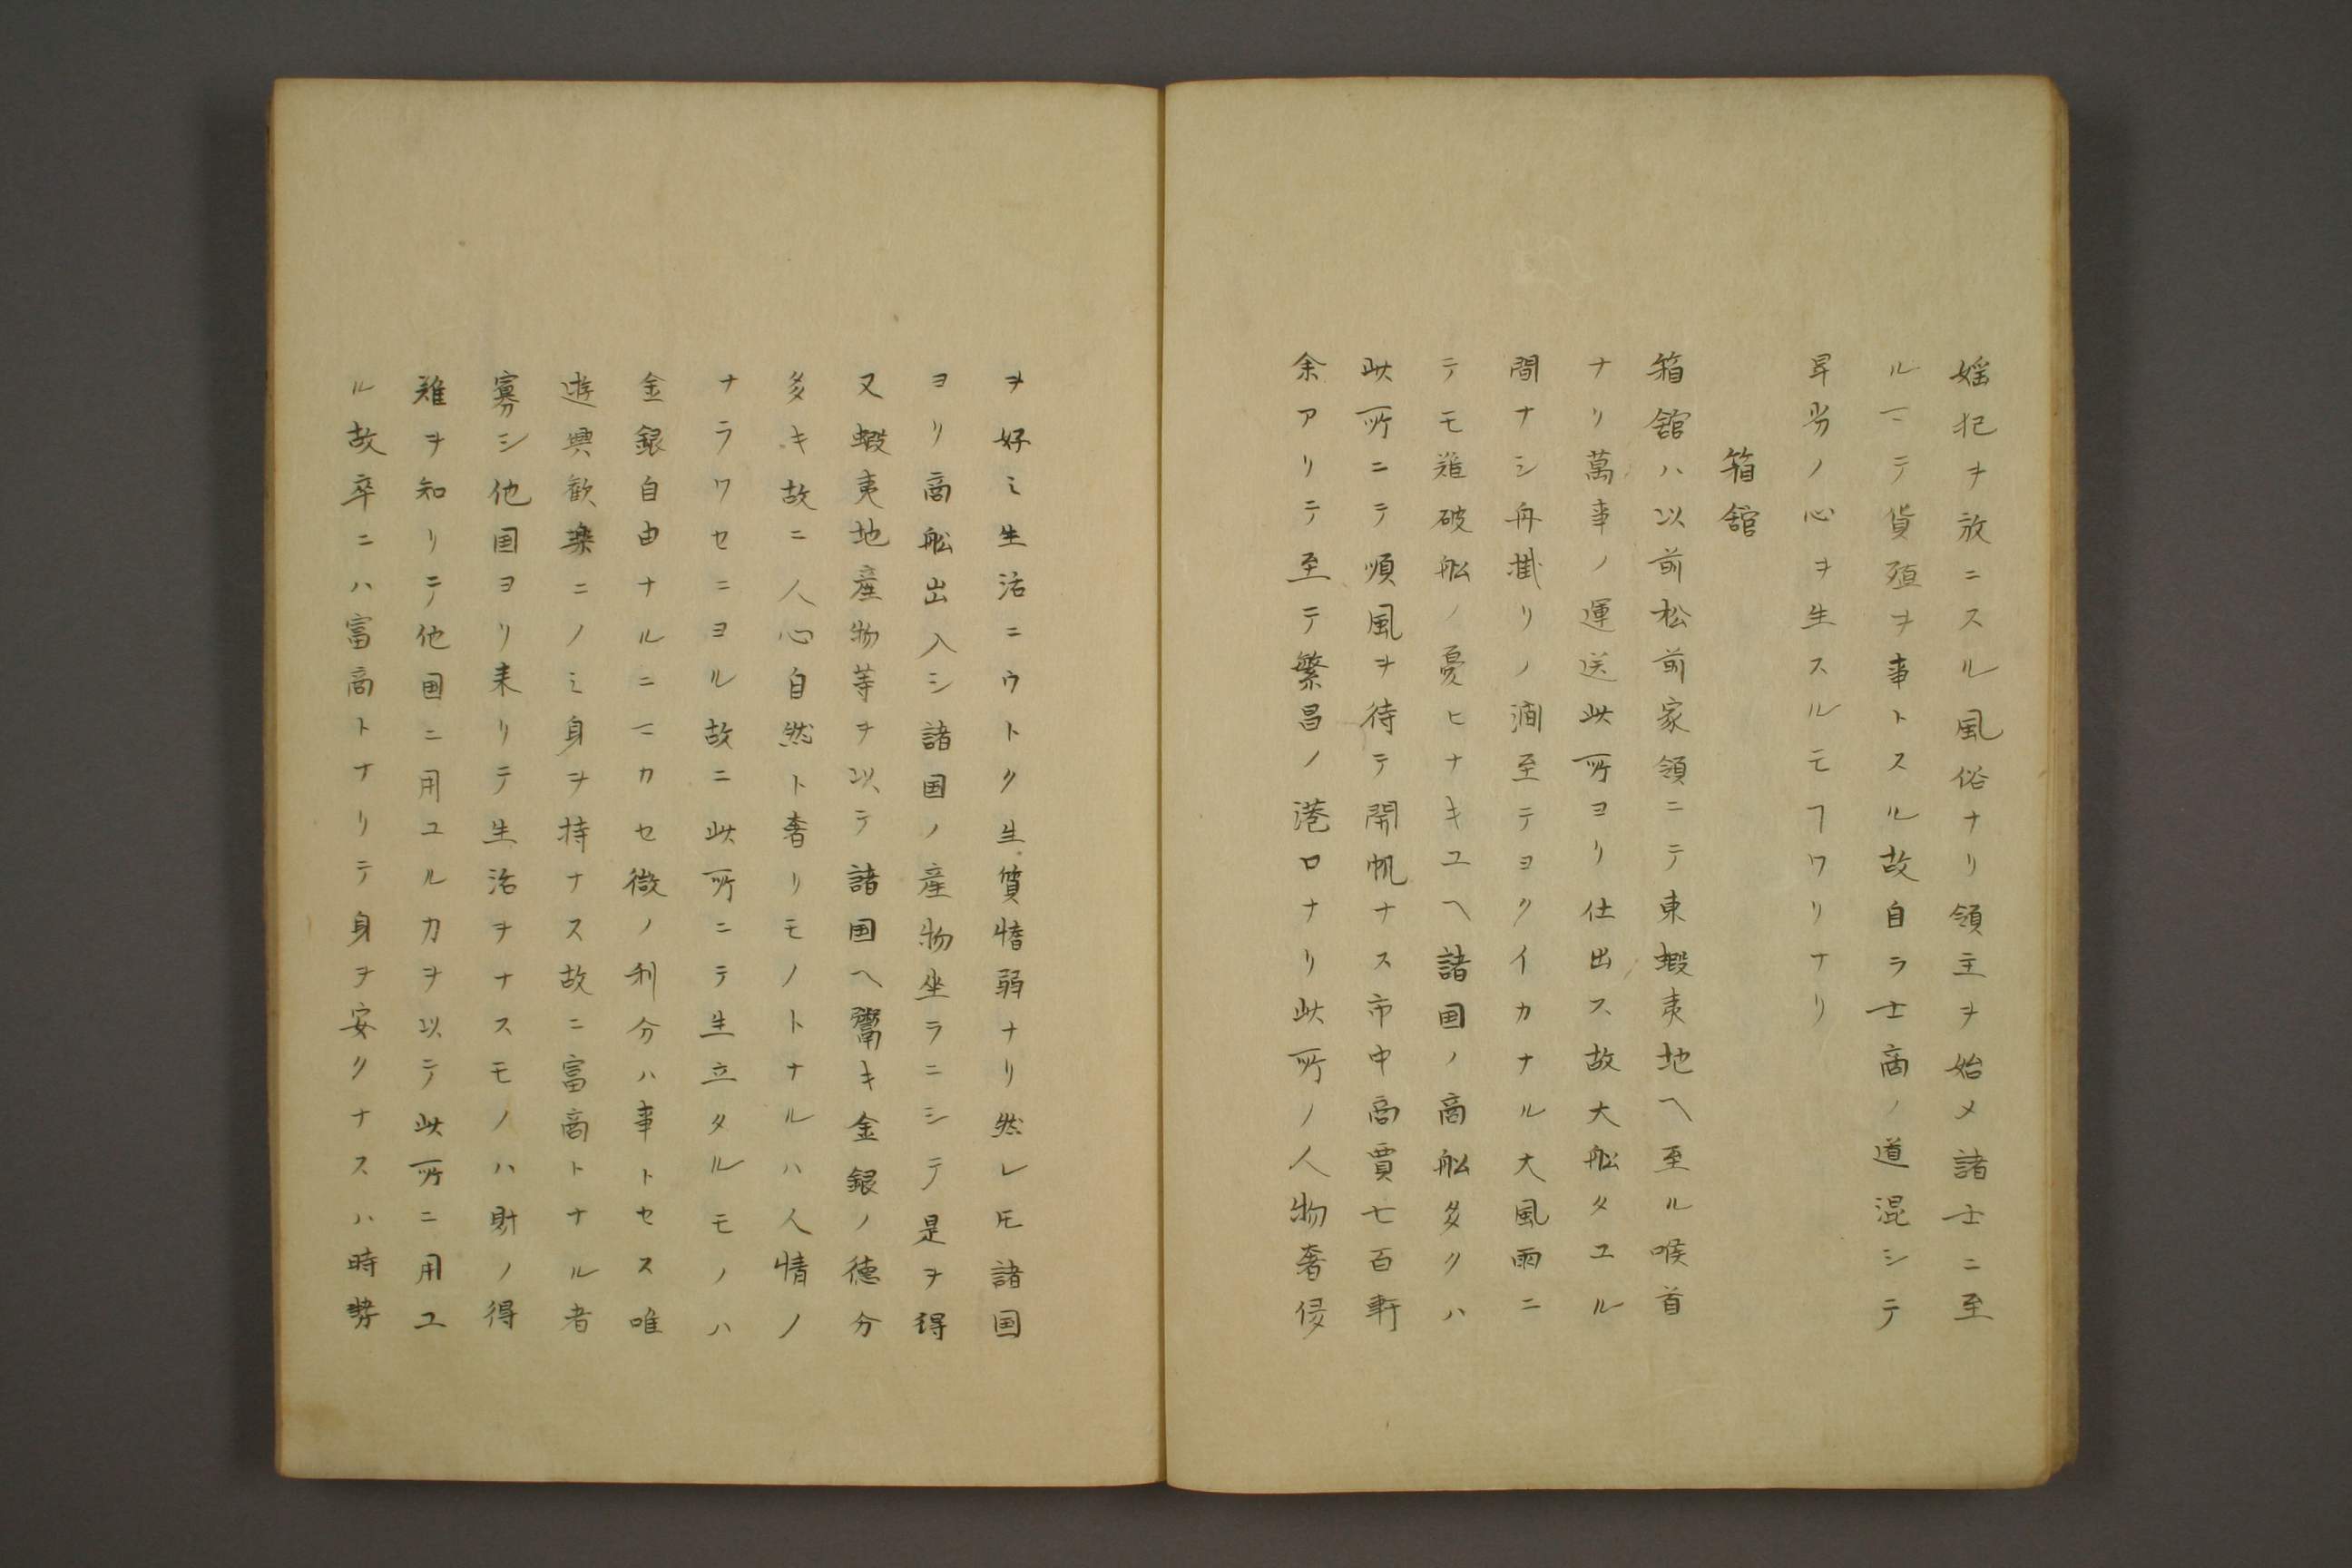 婬犯ヲ放ニスル風俗ナリ領主ヲ始メ諸士ニ至
ルマテ貨殖ヲ事トスル故自ラ士商ノ道混シテ
卑劣ノ心ヲ生スルモヿワリナリ
箱舘
箱舘ハ以前松前家領ニテ東蝦夷地ヘ至ル喉首
ナリ萬事ノ運送此所ヨリ仕出ス故大舩タユル
間ナシ舟掛リノ澗至テヨクイカナル大風雨ニ
テモ難破舩ノ憂ヒナキユヘ諸国ノ商舩多クハ
此所ニテ順風ヲ待テ開帆ナス市中商賈七百軒
余アリテ至テ繁昌ノ港口ナリ此所ノ人物奢侈
ヲ好ミ生活ニウトク生質惰弱ナリ然レ𪜈諸国
ヨリ商舩出入シ諸国ノ産物坐ラニシテ是ヲ得
又蝦夷地産物等ヲ以テ諸国ヘ鬻キ金銀ノ徳分
多キ故ニ人心自然ト奢リモノトナルハ人情ノ
ナラワセニヨル故ニ此所ニテ生立タルモノハ
金銀自由ナルニマカセ微ノ利分ハ事トセス唯
遊興歓樂ニノミ身ヲ持ナス故ニ富商トナル者
寡シ他国ヨリ来リテ生活ヲナスモノハ財ノ得
難ヲ知リテ他国ニ用ユル力ヲ以テ此所ニ用ユ
ル故卒ニハ富商トナリテ身ヲ安クナスハ時勢